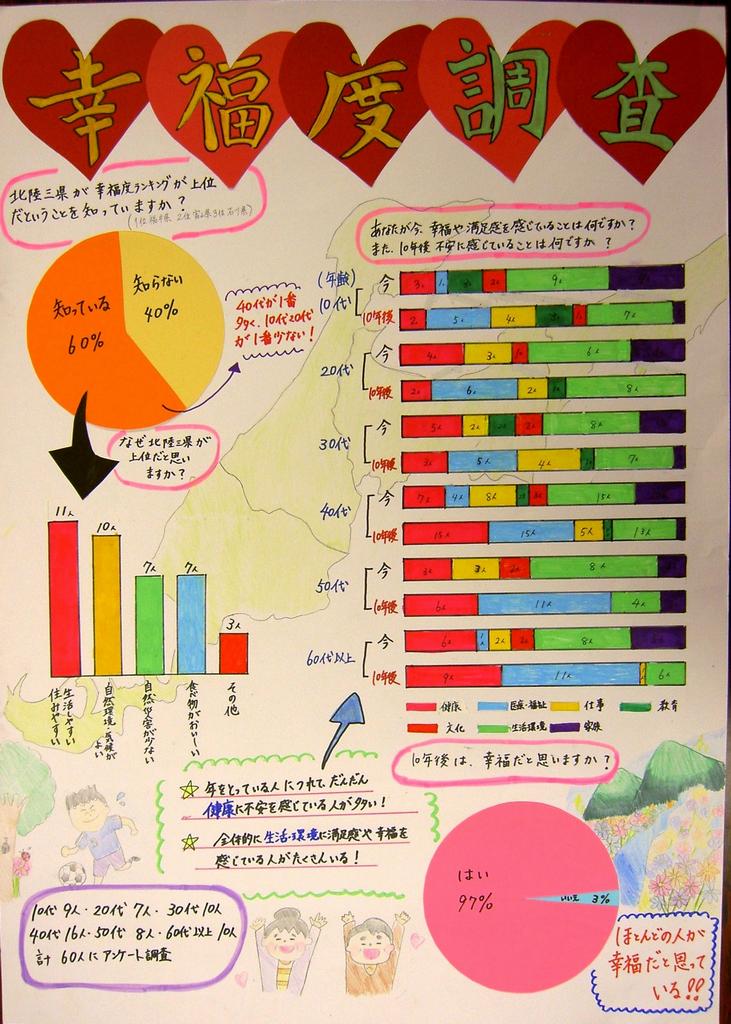 幸福度調査
北陸三県が幸福度ランキングが上位
だということを知っていますか?
(1位福井県 2位富山県 3位石川県)
知らない
40%
知っている
60%
40代が1番
多く、10代20代
が1番少ない!
なぜ北陸三県が
上位だと思い
ますか?
11人
10人
7人
7人
3人
生活しやすい
住みやすい
自然環境・気候が
よい
自然災害が少ない
食べ物がおいしい
その他
あなたが今、幸福や満足感を感じていることは何ですか?
また、10年後 不安に感じていることは何ですか?
(年齢)
10代
今 3人 1人 2人 9人
10年後 2 5人 4人 1人 7人
20代
今 4人 3人 1人 6人
10年後 2人 6人 2人 8人
30代
今 5人 2人 2人 2人 8人
10年後 3人 5人 4人 7人
40代
今 7人 4人 8人 15人
10年後 15人 15人 5人 13人
50代
今 3人 3人 2人 8人
10年後 6人 11人 4人
60代以上
今 6人 1人 2人 2人 8人
10年後 9人 11人 6人
健康 医療・福祉 仕事 教育
文化 生活環境 家族
☆ 年をとっている人につれて、だんだん
健康に不安を感じている人が多い!
☆ 全体的に生活・環境に満足感や幸福を
感じている人がたくさんいる!
10年後は、幸福だと思いますか?
はい
97%
いいえ 3%
ほとんどの人が
幸福だと思って
いる!!
10代 9人・20代 7人・30代 10人
40代 16人・50代 8人・60代以上 10人
計 60人にアンケート調査